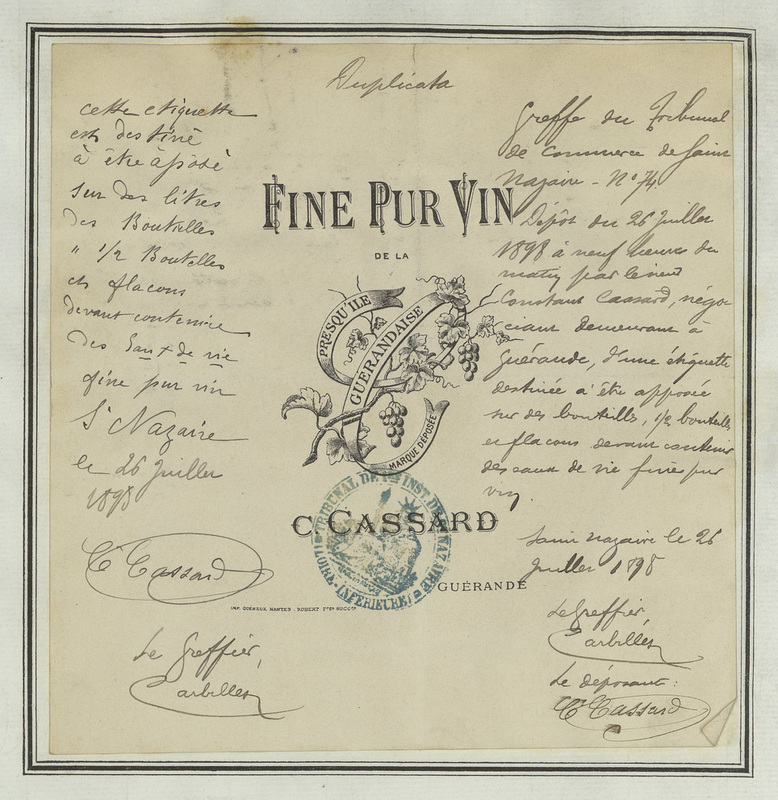 Duplicata
cette etiquette
est destiné
à être àposé
sur des litres
des Bouteilles
" 1/2 Bouteilles
et flacons
devant contenire
des Eaux de vie
fine pur vin
St Nazaire
le 26 Juillet
1898
Ct Cassard
Le Greffier,
FINE PUR VIN
DE LA
PRESQU'ILE
GUÉRANDAISE
MARQUE DÉPOSÉE
C. CASSARD
GUÉRANDE
TRIBUNAL DE 1ère INST. DE St NAZAIRE
(LOIRE-INFÉRIEURE)
Greffe du Tribunal
de Commerce de Saint
Nazaire - No 74
Dépôt du 26 Juillet
1898 à neuf heures du
matin par le sieur
Constant Cassard, négo
ciant demeurant à
Guérande, d'une étiquette
destinée à être apposée
sur des bouteilles, 1/2 bouteilles
et flacons devant contenir
des eaux de vie fine pur
vin.
Saint Nazaire le 26
Juillet 1898
Le Greffier,
Le déposant:
Ct Cassard